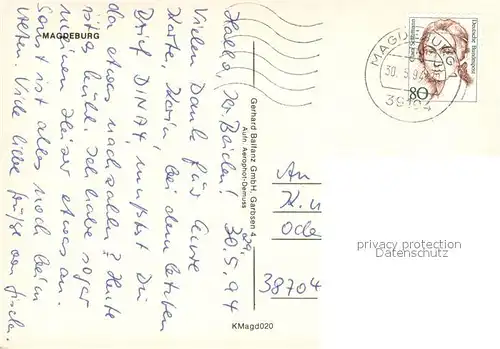 MAGDEBURG
Hallo, Ihr Beiden!
30.5.94
Vielen Dank für Eure
Karte, Karin, bei dem letzten
Brief DINA4, mußtest Du
da etwas nachzahlen? Heute
ist's kühl. Ich habe sogar
meinen Heizer etwas an.
Sonst ist alles noch beim
Alten. Viele liebe Grüße von
Gerhard Balfanz GmbH, Garbsen 4
Aufn. Aerophot-Demuss
KMagd020
MAGDEBURG 1
30.5.94
39104
Deutsche Bundespost
80
An
K. u
Ode
38704
privacy protection
watermark